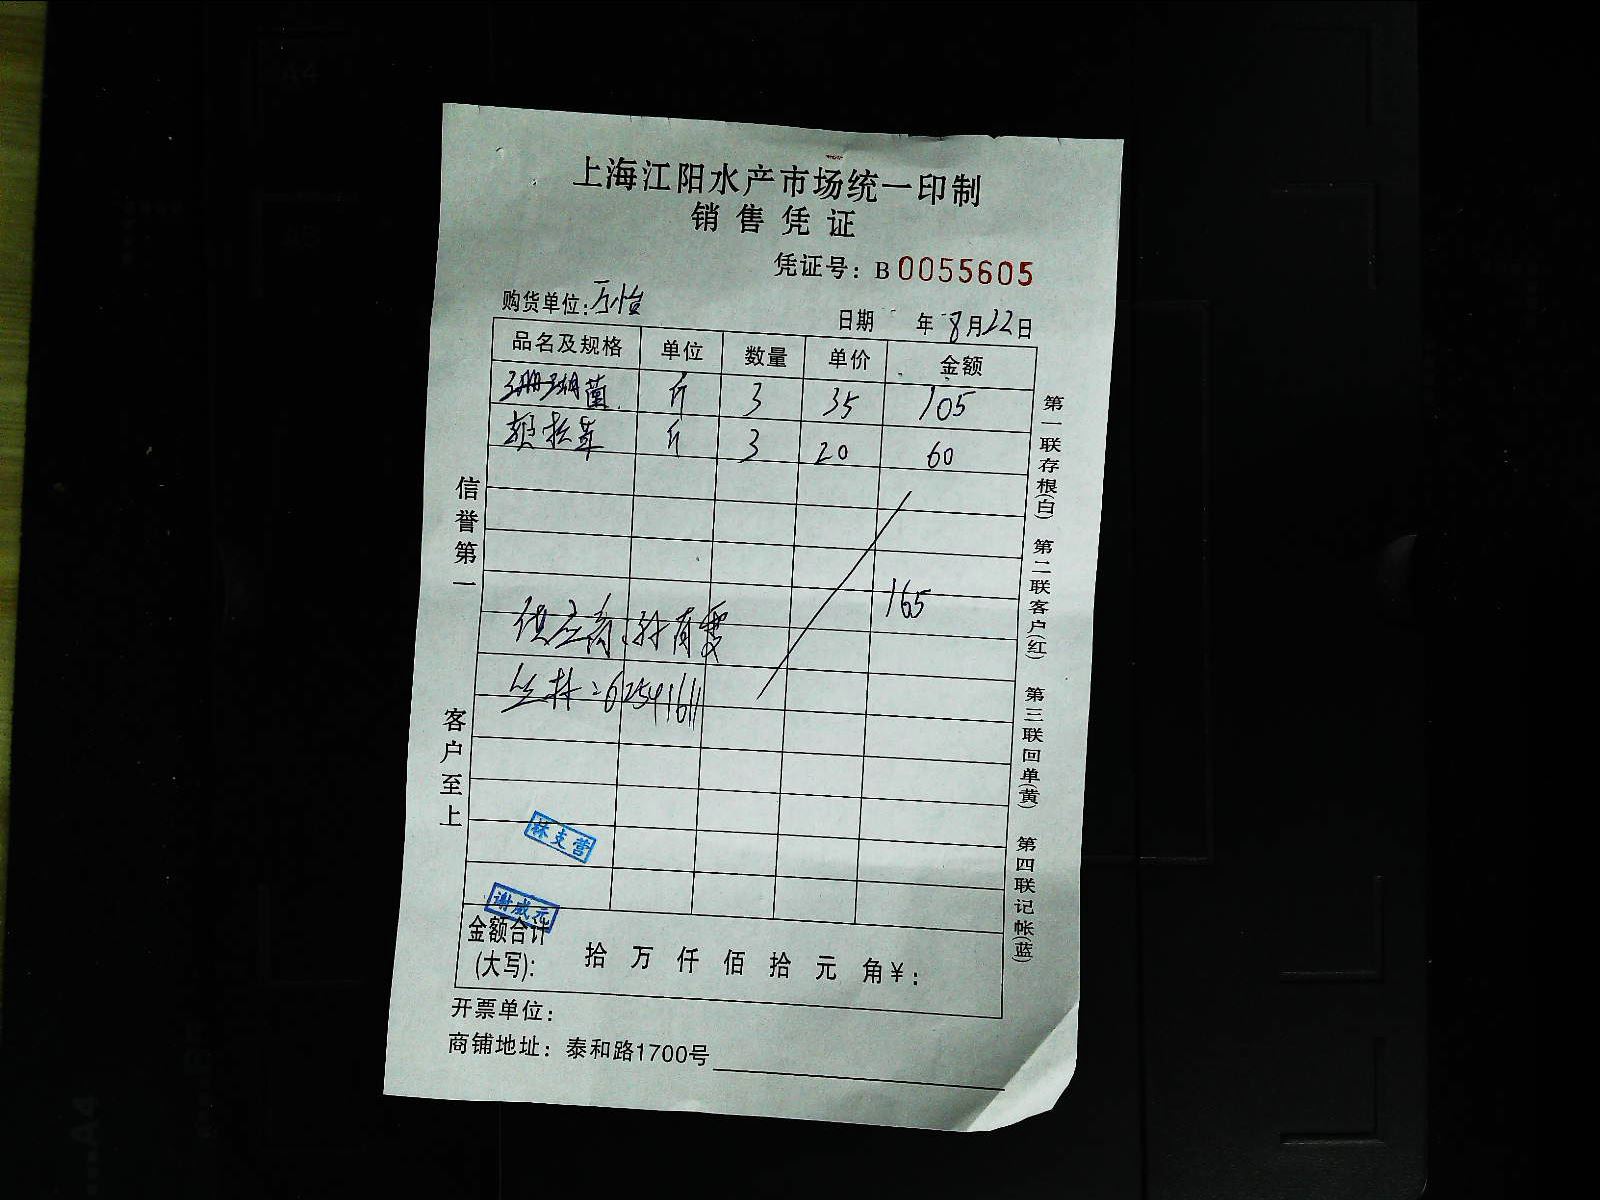 上海江阳水产市场统一印制
销售凭证
凭证号：B0055605
购货单位：万怡
日期 年 8月22日
品名及规格 单位 数量 单价 金额
珊瑚菌 斤 3 35 105
斤 3 20 60
165
供应商：孙育雯
62541611
林支营
谢威元
金额合计(大写)： 拾 万 仟 佰 拾 元 角￥：
开票单位：
商铺地址：泰和路1700号
信誉第一
客户至上
第一联存根(白) 第二联客户(红) 第三联回单(黄) 第四联记帐(蓝)